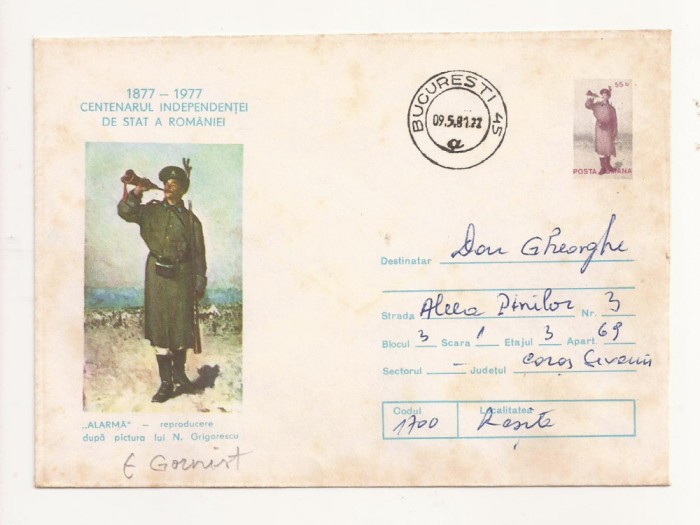 1877 – 1977
CENTENARUL INDEPENDENȚEI
DE STAT A ROMÂNIEI
BUCUREȘTI 45
09.5.81.22
a
55 B
POSTA ROMANA
Destinatar Dou Gheorghe
Strada Aleea Pinilor Nr. 3
Blocul 3 Scara 1 Etajul 3 Apart. 69
Sectorul – Județul Caraș Severin
Codul Localitatea
1700 Reșița
„ALARMĂ" – reproducere
după pictura lui N. Grigorescu
E Gornist